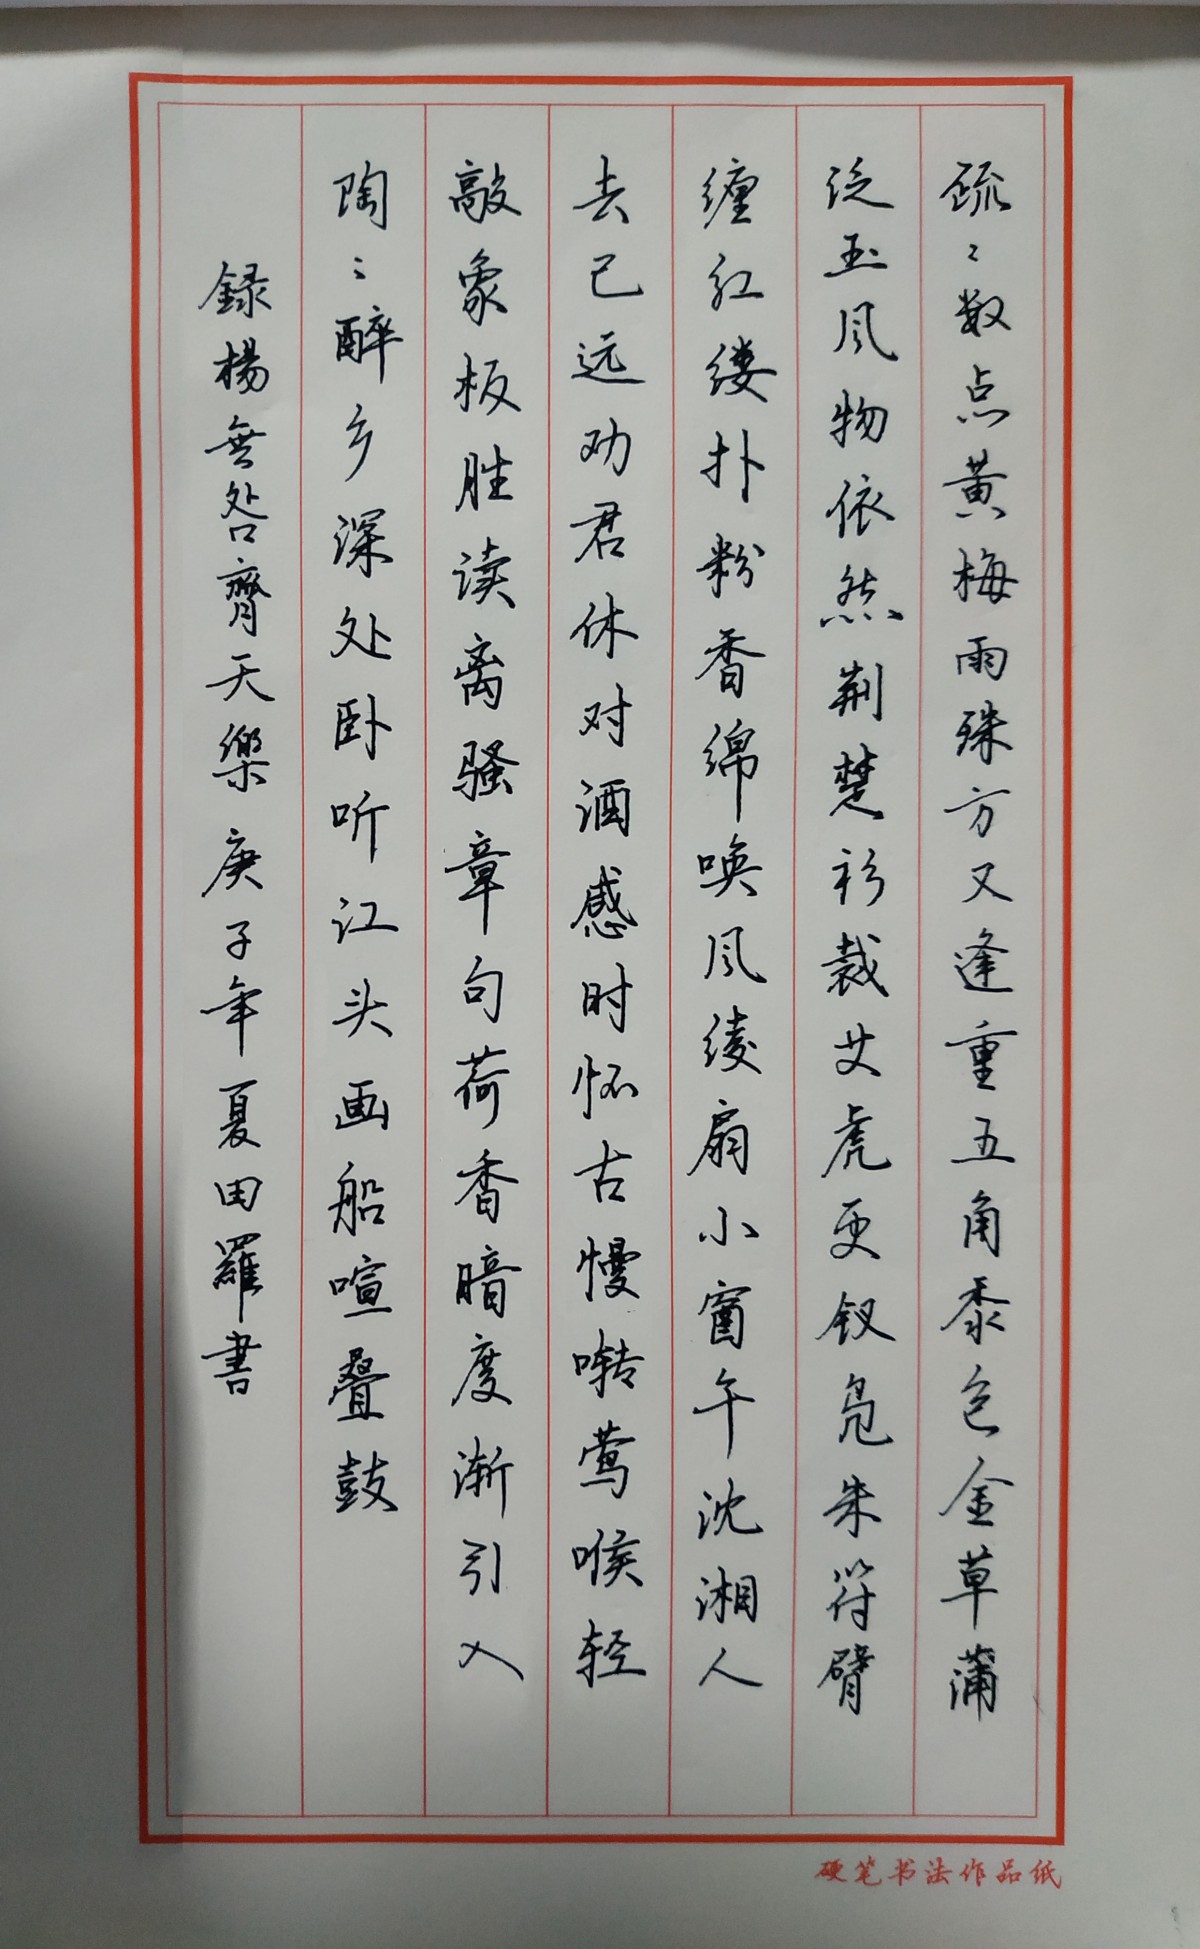 疏〻数点黄梅雨殊方又逢重五角黍包金草蒲
泛玉风物依然荆楚衫裁艾虎更钗凫朱符臂
缠红缕扑粉香绵唤风绫扇小窗午沈湘人
去已远劝君休对酒感时怀古慢啭莺喉轻
敲象板胜读离骚章句荷香暗度渐引入
陶〻醉乡深处卧听江头画船喧叠鼓
録楊無咎齊天樂庚子年夏田羅書
硬笔书法作品纸